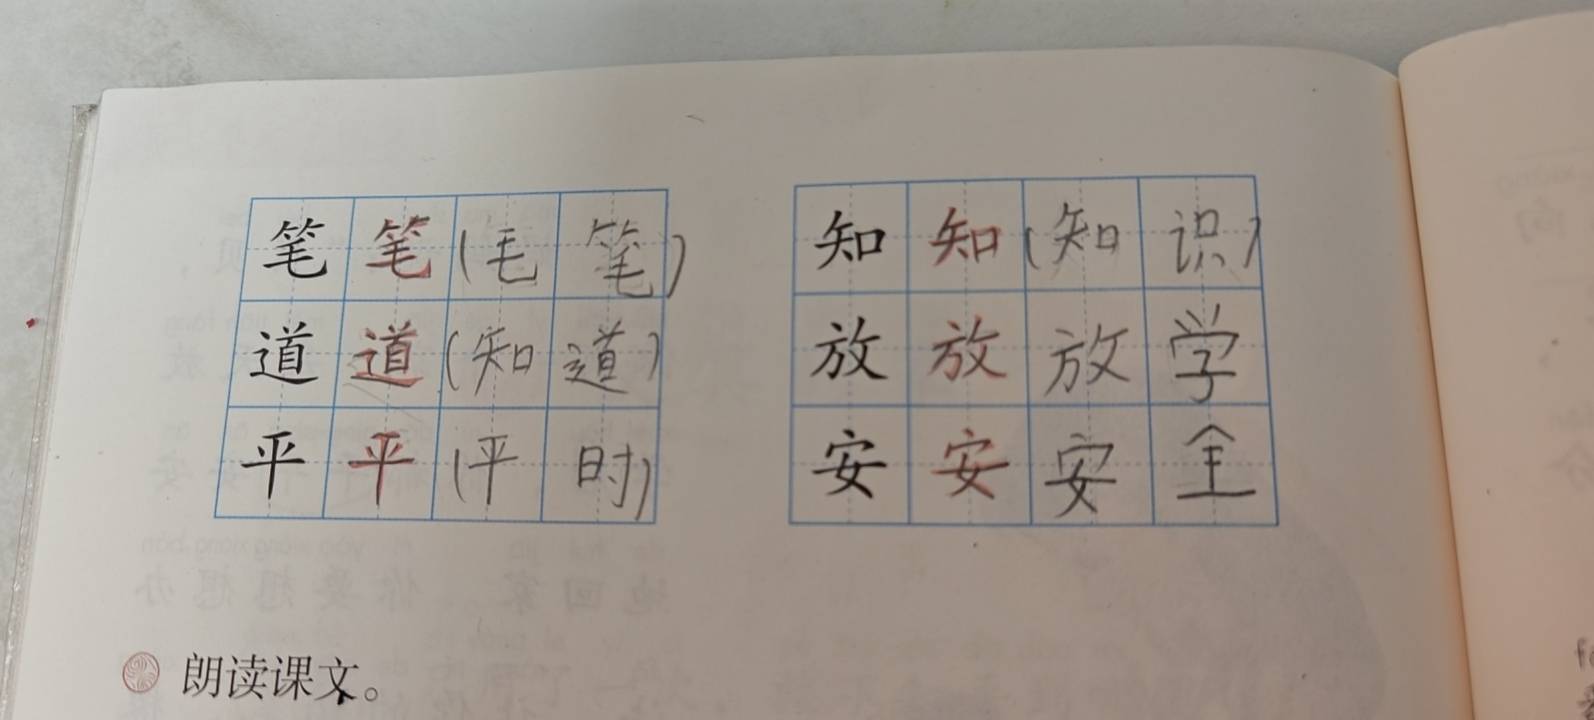 笔 笔 (毛 笔)
道 道 (知 道)
平 平 (平 时)
知 知 (知 识)
放 放 放 学
安 安 安 全
朗读课文。